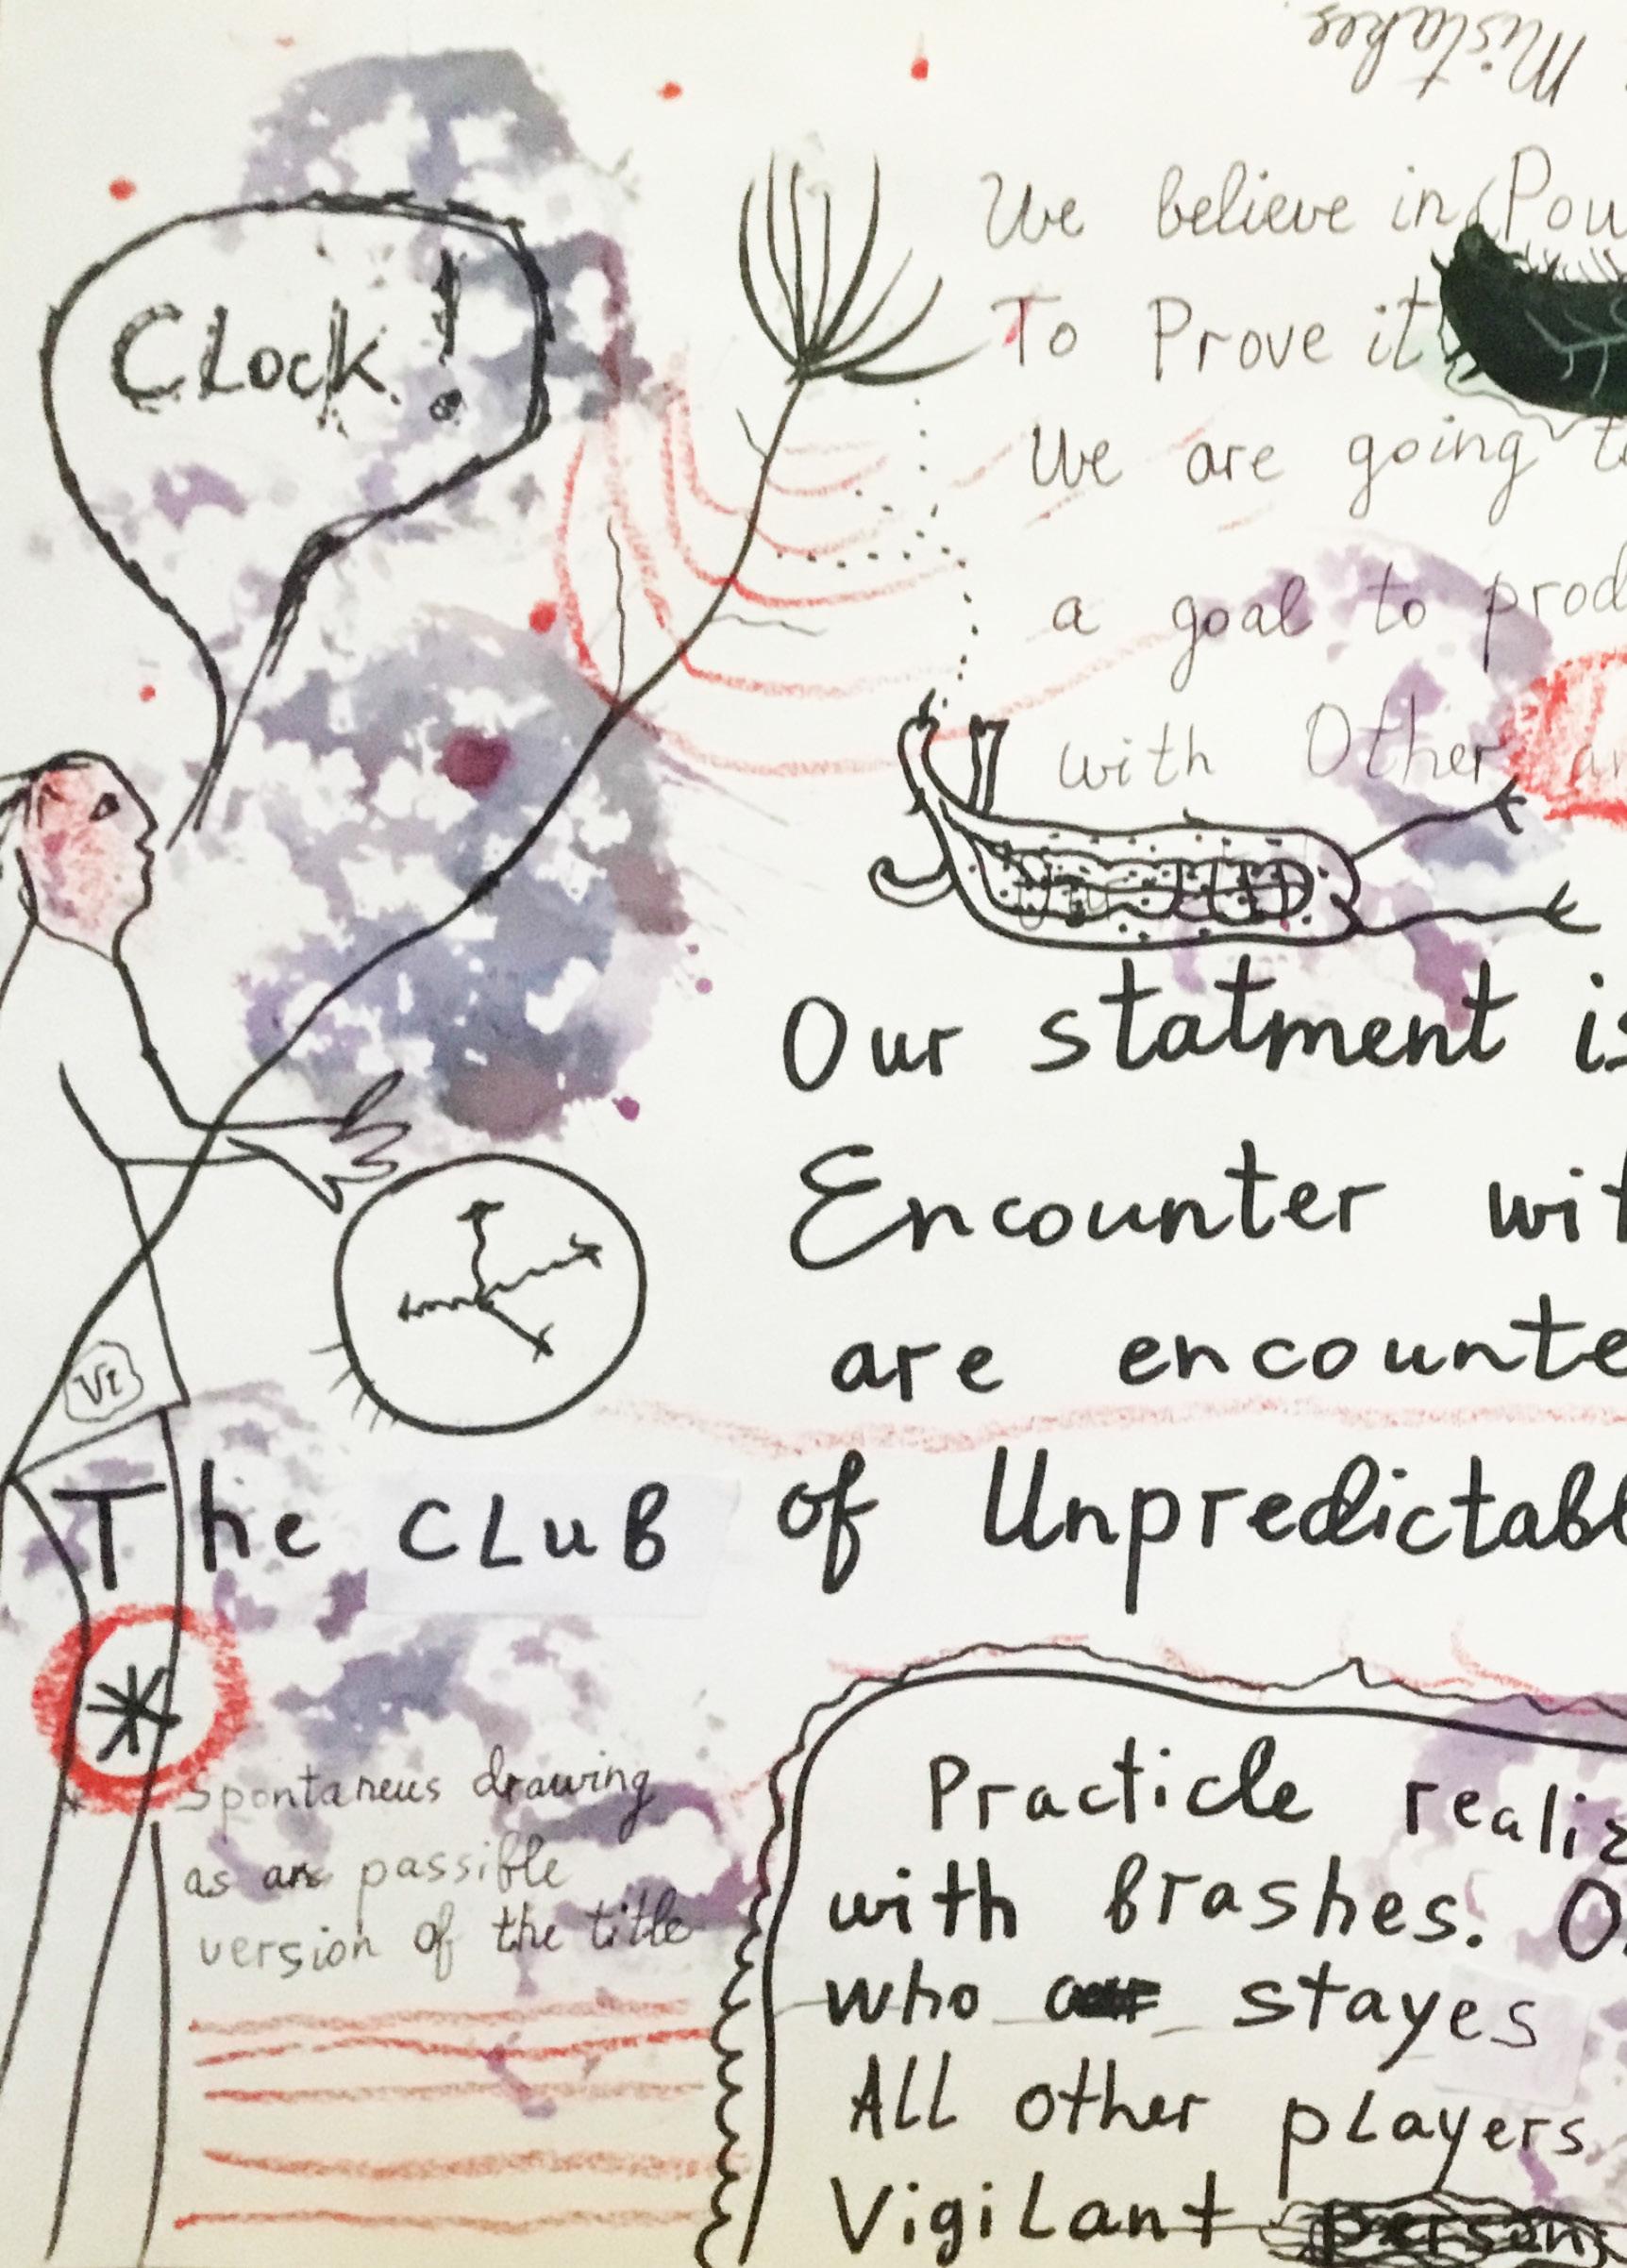 Mistakes
We believe in Pou
To Prove it
We are going t
a goal to prod
with Other
Clock!
Our statment is
Encounter wit
are encounte
VI
The CLUB of Unpredictabl
*
* Spontaneus drawing
as an passible
version of the title
Practicle realiz
with brashes. O
who stayes
All other players
Vigilant person